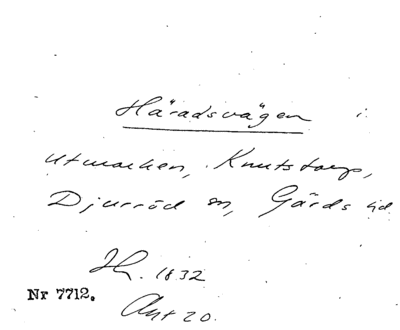 Häradsvägen i
utmarken, Knutstorp,
Djurröd sn, Gärds hd
H. 1832
Nr 7712.
Akt 20.